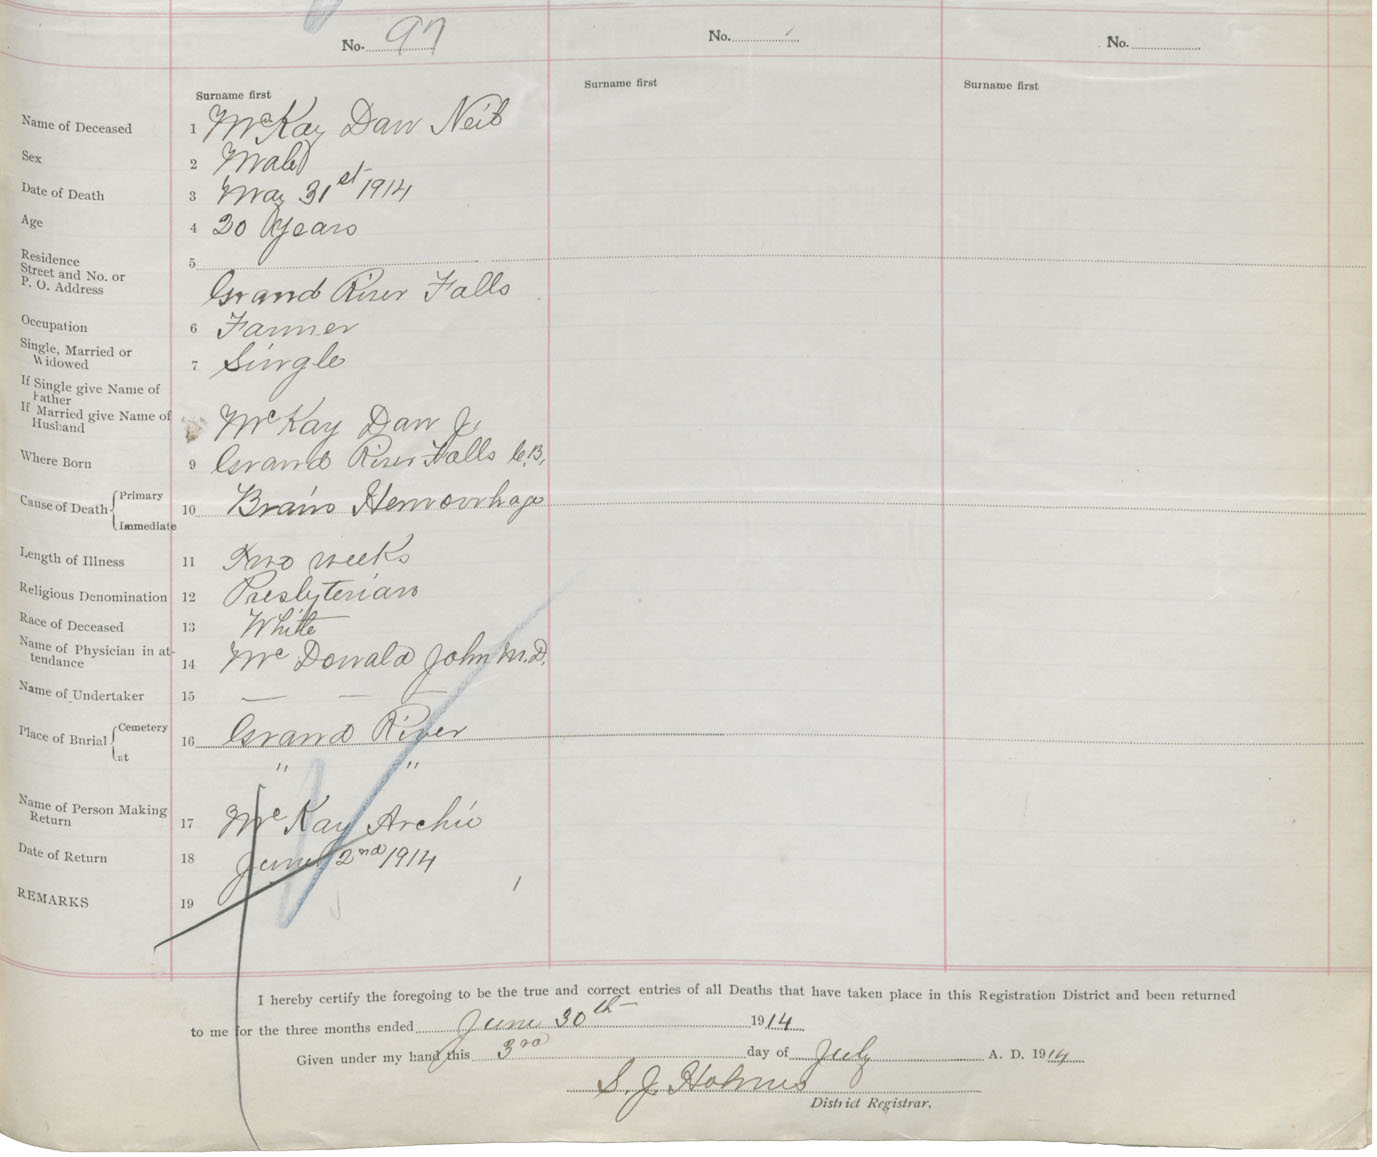 No. 97
No.
No.
Surname first
Surname first
Surname first
Name of Deceased 1 McKay Dan Neil
Sex 2 Male
Date of Death 3 May 31st 1914
Age 4 20 Years
Residence
Street and No. or
P. O. Address
5
Grand River Falls
Occupation 6 Farmer
Single, Married or
Widowed
7 Single
If Single give Name of
Father
If Married give Name of
Husband
McKay Dan J.
Where Born 9 Grand River Falls C.B.
Cause of Death { Primary
Immediate
10 Brain Hemorrhage
Length of Illness 11 Two weeks
Religious Denomination 12 Presbyterian
Race of Deceased 13 White
Name of Physician in at-
tendance
14 McDonald John M.D.
Name of Undertaker 15 — — —
Place of Burial { Cemetery
at
16 Grand River
" "
Name of Person Making
Return
17 McKay Archie
Date of Return 18 June 2nd 1914
REMARKS 19
I hereby certify the foregoing to be the true and correct entries of all Deaths that have taken place in this Registration District and been returned
to me for the three months ended June 30th 1914
Given under my hand this 3rd day of July A. D. 1914
S. J. Holmes
District Registrar.